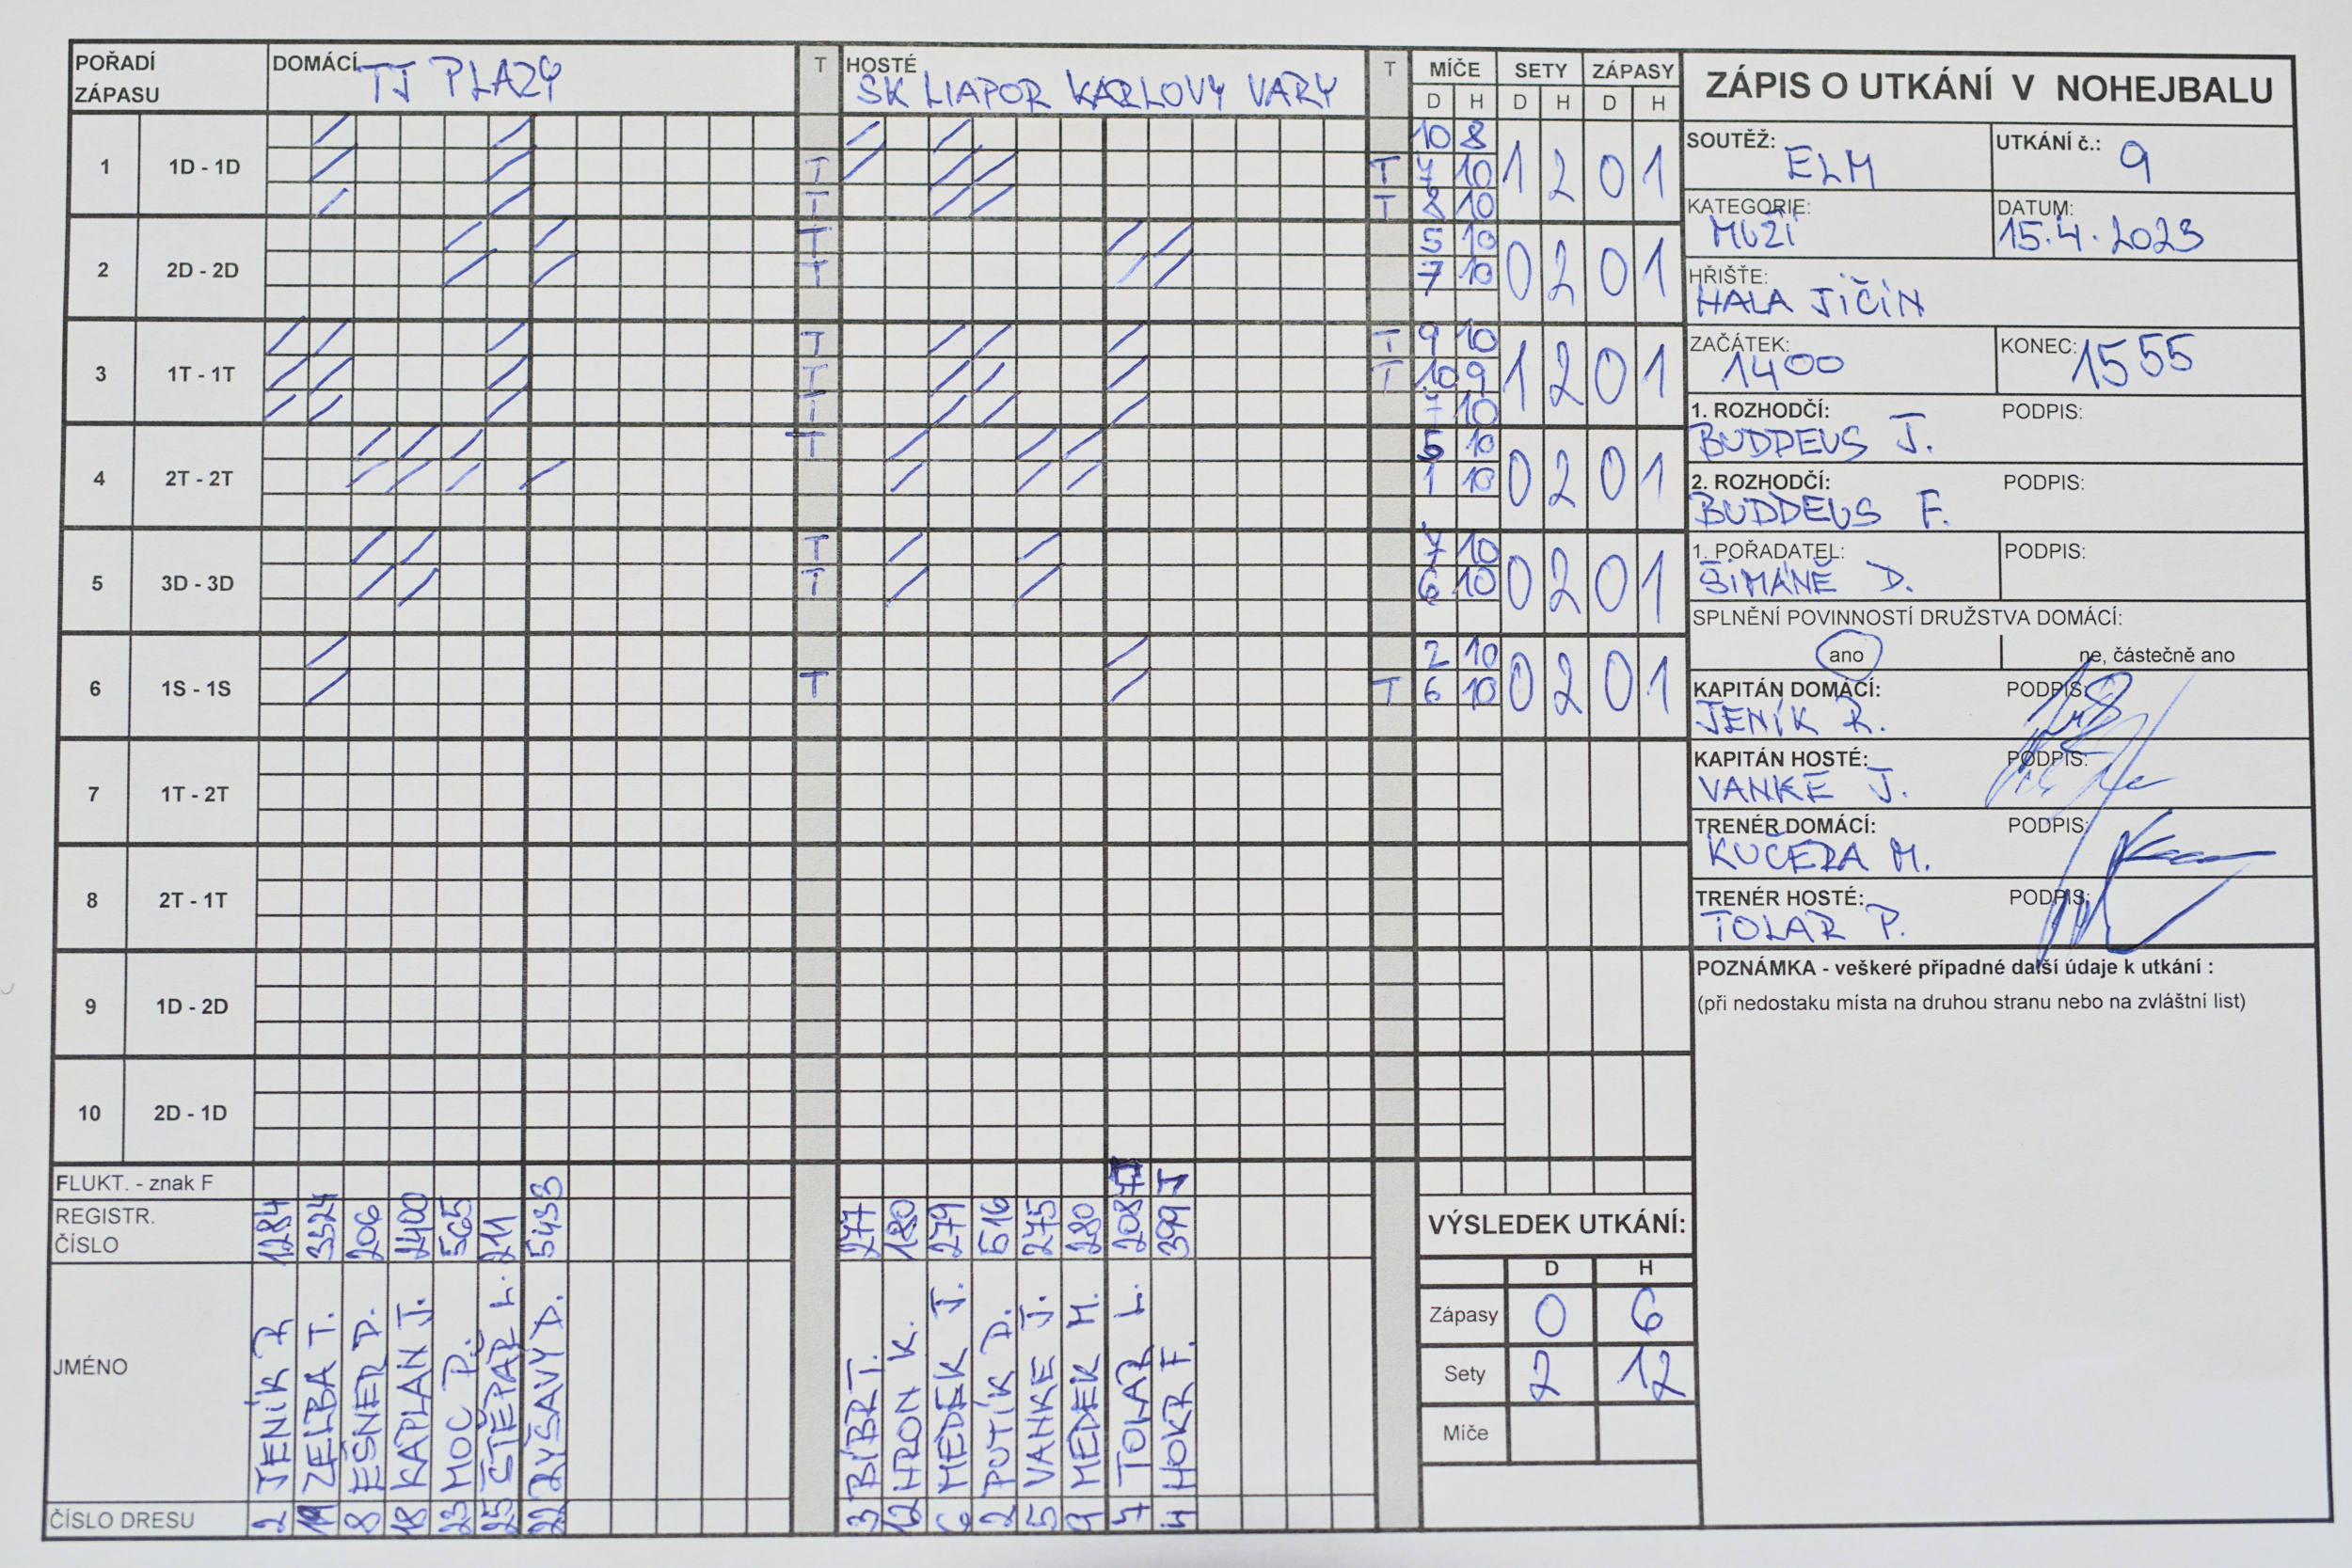 POŘADÍ ZÁPASU
DOMÁCÍ TJ PLAZY
T
HOSTÉ SK LIAPOR KARLOVY VARY
T
MÍČE SETY ZÁPASY
D H D H D H
1 1D - 1D T T T T 10 8 7 10 8 10 1 2 0 1
2 2D - 2D T T 5 10 7 10 0 2 0 1
3 1T - 1T T T T T T 9 10 10 9 10 1 2 0 1
4 2T - 2T T 5 10 1 10 0 2 0 1
5 3D - 3D T T 7 10 6 10 0 2 0 1
6 1S - 1S T T 2 10 6 10 0 2 0 1
7 1T - 2T
8 2T - 1T
9 1D - 2D
10 2D - 1D
FLUKT. - znak F
REGISTR. ČÍSLO
1284 3324 206 565 211 5433
277 180 279 516 275 280 399 T
JMÉNO
JENÍK R
ZELBA T.
EŠNER D.
KAPLAN J.
MOC P.
ŠTĚPAŘ L.
RYŠAVÝ D.
BÍBR T.
HRON K.
MEDEK J.
PUTÍK D.
VANKE J.
MEDEK M.
TOLAR L.
HOKR F.
ČÍSLO DRESU
2 8 18 23 25 22
3 12 6 2 5 9 7 4
VÝSLEDEK UTKÁNÍ:
D H
Zápasy 0 6
Sety 2 12
Míče
ZÁPIS O UTKÁNÍ V NOHEJBALU
SOUTĚŽ: ELM
UTKÁNÍ č.: 9
KATEGORIE: MUŽI
DATUM: 15.4.2023
HŘIŠTE: HALA JIČÍN
ZAČÁTEK: 1400
KONEC: 1555
1. ROZHODČÍ: PODPIS:
BUDDEUS J.
2. ROZHODČÍ: PODPIS:
BUDDEUS F.
1. POŘADATEL: PODPIS:
ŠIMÁNĚ D.
SPLNĚNÍ POVINNOSTÍ DRUŽSTVA DOMÁCÍ:
ano ne, částečně ano
KAPITÁN DOMÁCÍ: PODPIS:
JENÍK R.
KAPITÁN HOSTÉ: PODPIS:
VANKE J.
TRENÉR DOMÁCÍ: PODPIS:
KUČERA M.
TRENÉR HOSTÉ: PODPIS:
TOLAR P.
POZNÁMKA - veškeré případné další údaje k utkání :
(při nedostaku místa na druhou stranu nebo na zvláštní list)